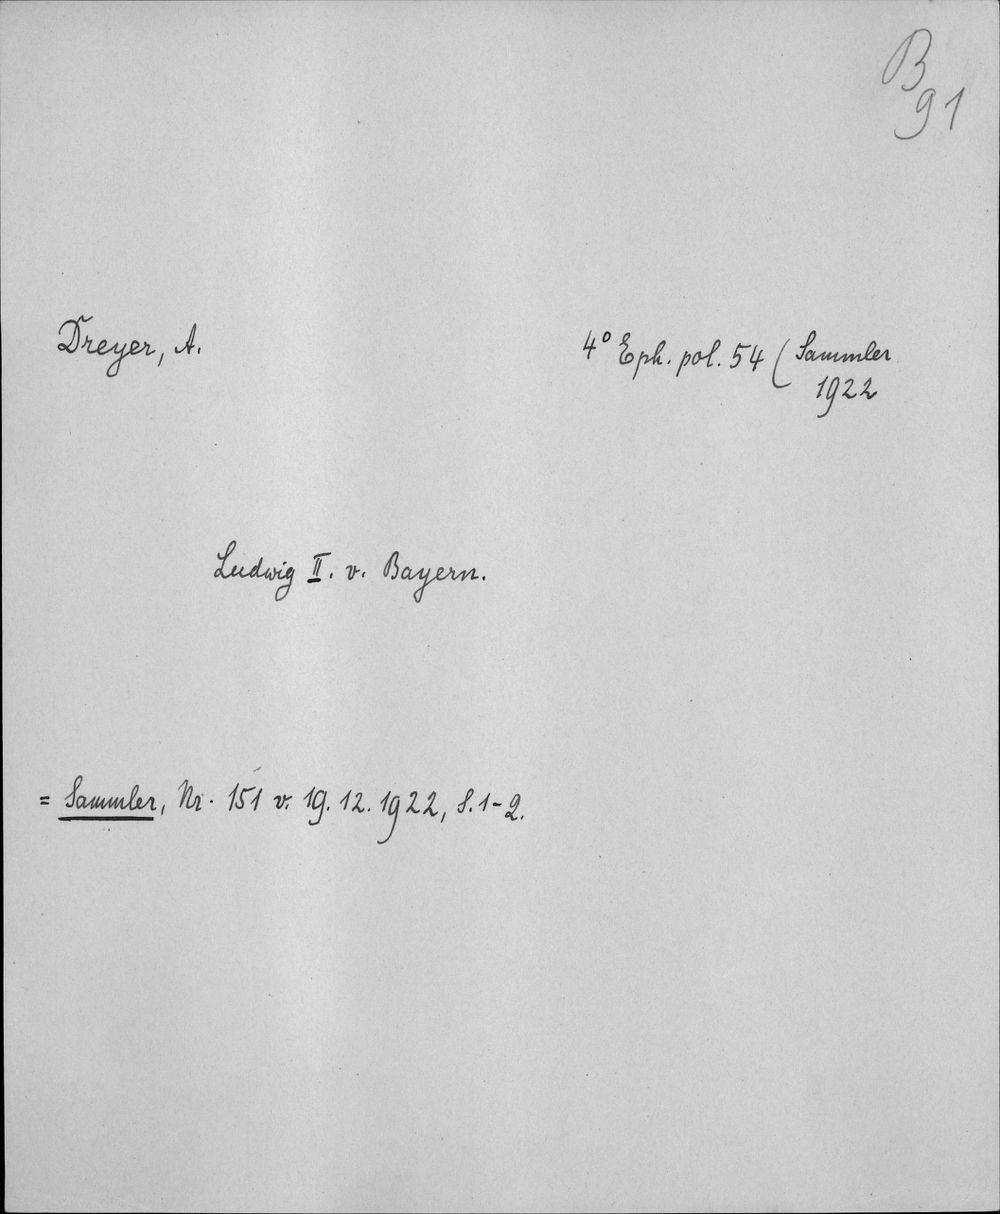 B
91
Dreyer, A.
4° Eph. pol. 54 (Sammler
1922
Ludwig II. v. Bayern.
= Sammler, Nr. 151 v. 19. 12. 1922, S. 1-2.